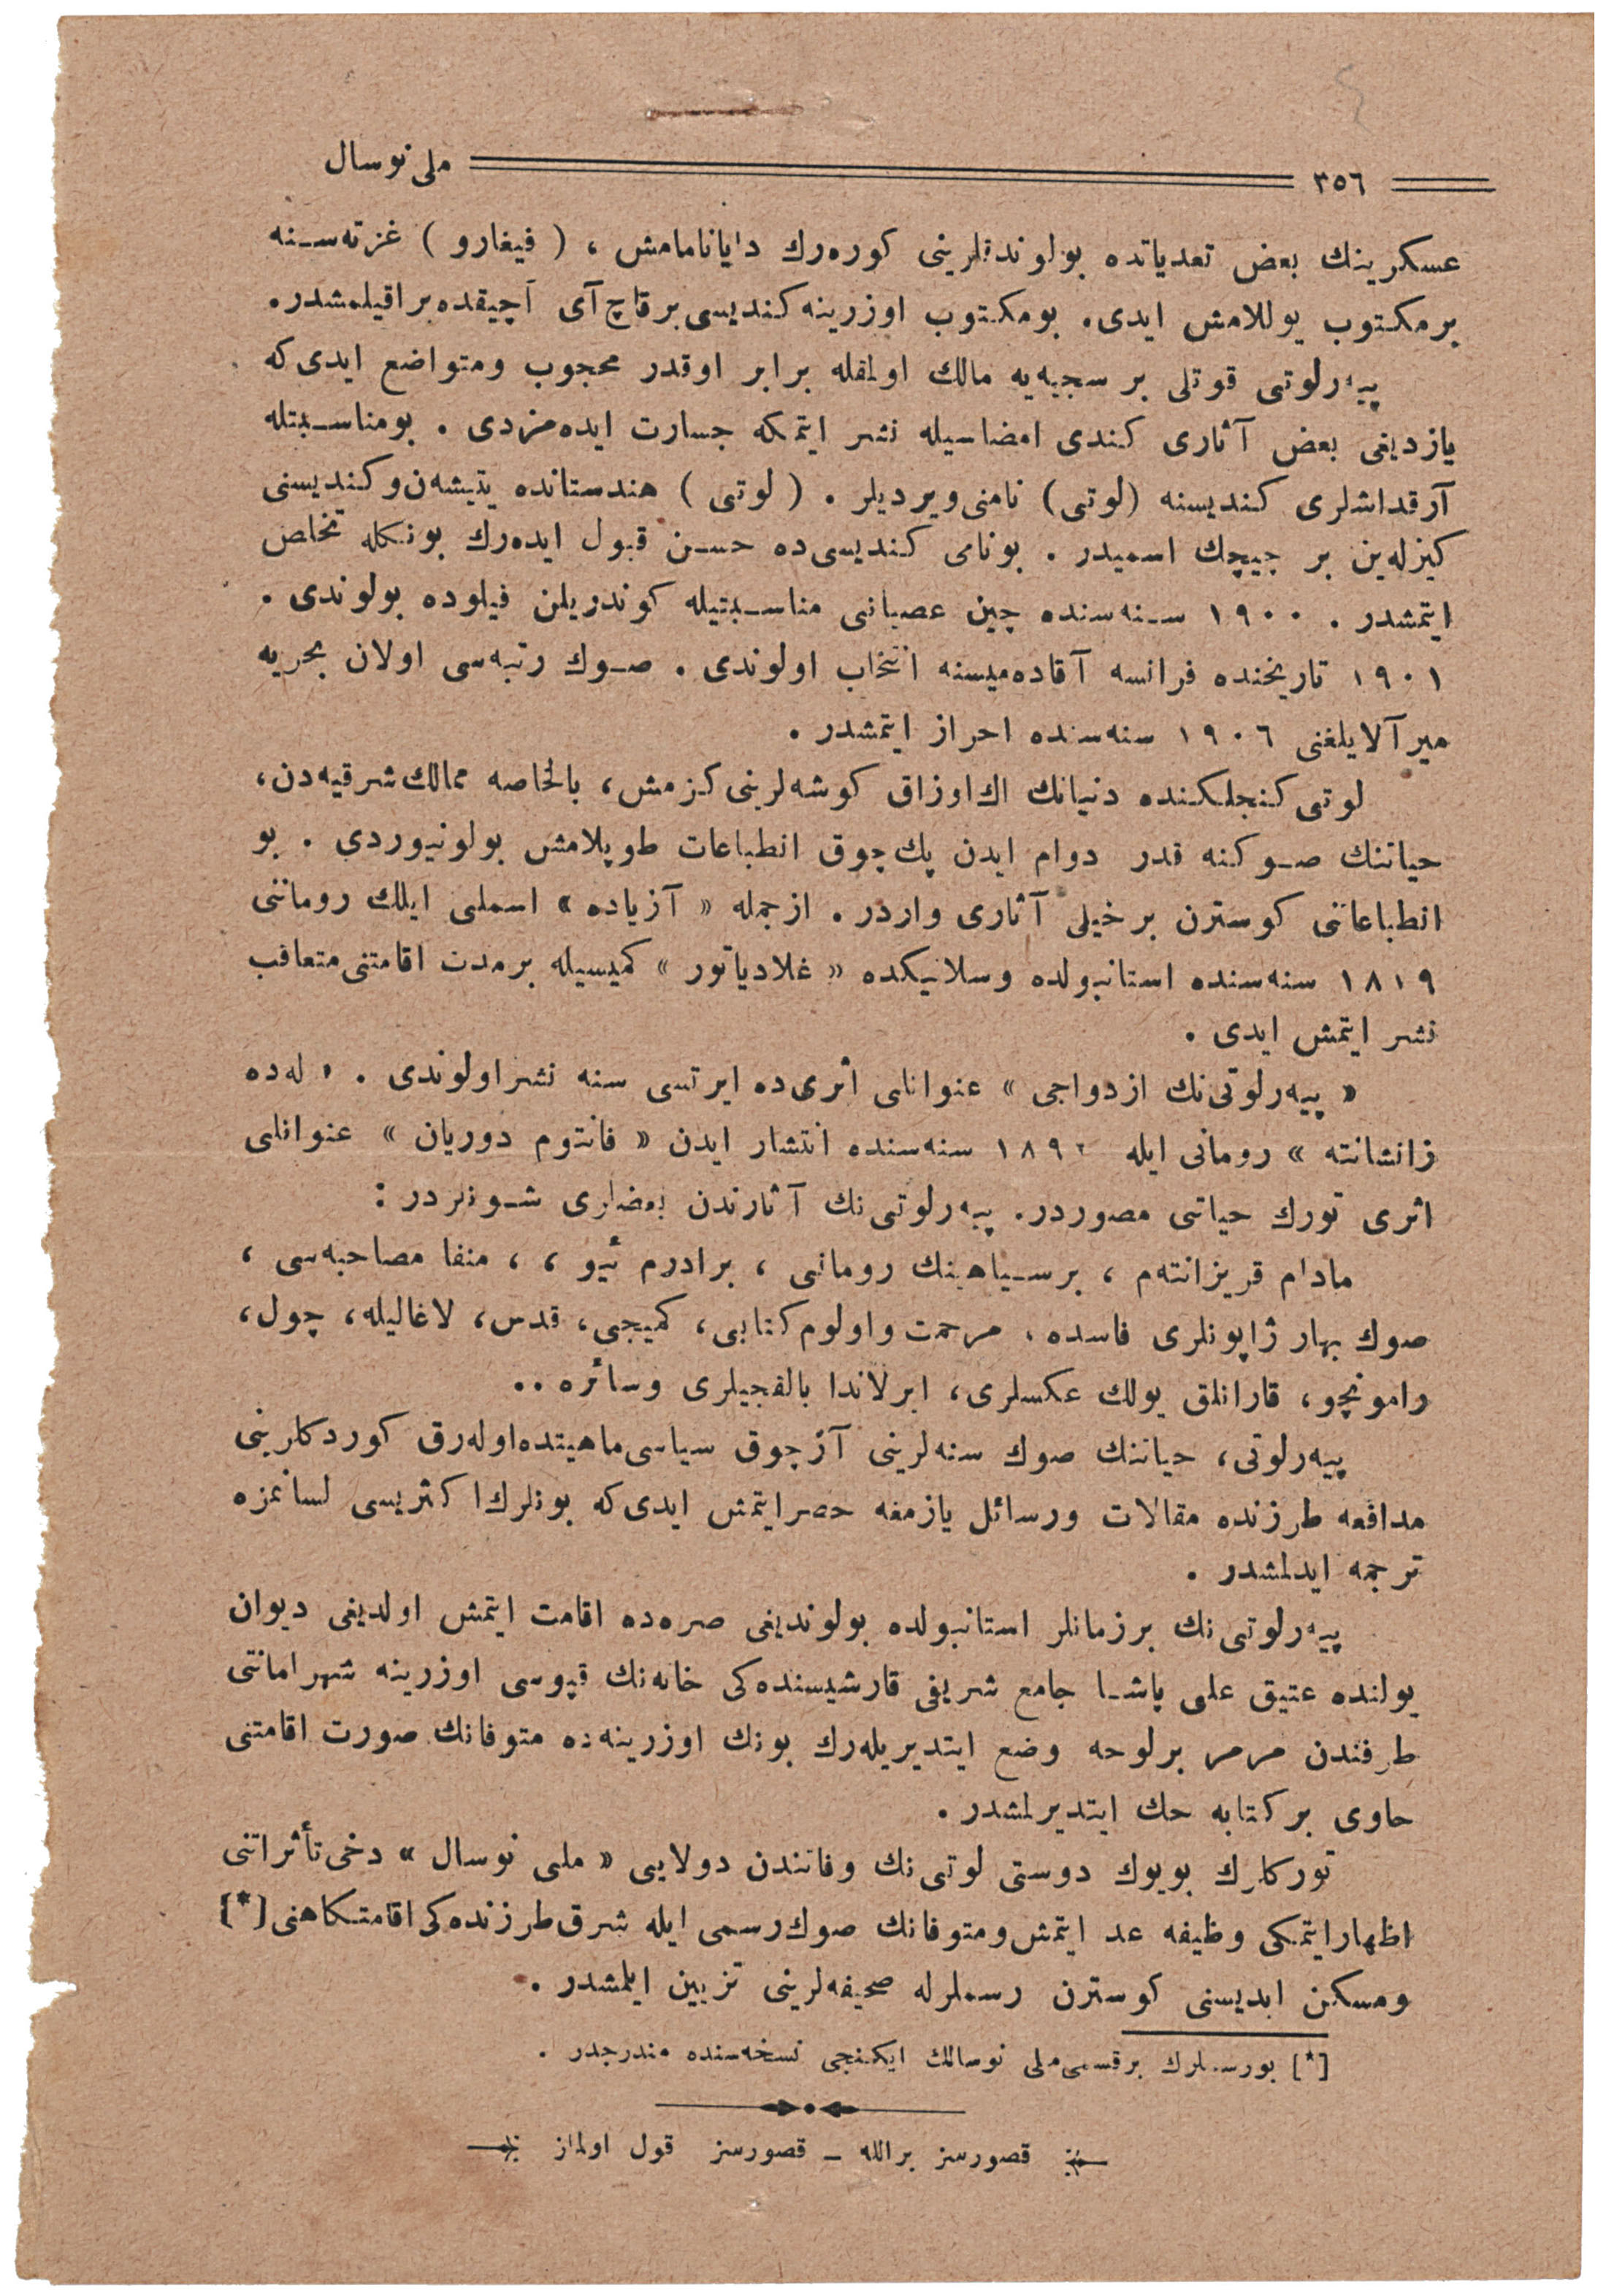 ٣٥٦ ملی نوسال
عسكرینك بعض تعدیاتده بولوندقلرینی كوره‌رك دایانامامش ، ( فیغارو ) غزته‌سـنه
برمكتوب یوللامش ایدی. بومكتوب اوزرینه كندیسی برقاچ آی آچیقده براقیلمشدر.
پیه‌رلوتی قوتلی بر سجیه‌یه مالك اولمقله برابر اوقدر محجوب ومتواضع ایدی كه
یازدیغی بعض آثاری كندی امضاسیله نشر ایتمكه جسارت ایده‌مزدی . بومناسـبتله
آرقداشلری كندیسنه (لوتی) نامنی ویردیلر . ( لوتی ) هندستانده یتیشه‌ن وكندیسنی
كیزله‌ین بر چیچك اسمیدر . بونامی كندیسی‌ده حسـن قبول ایده‌رك بونكله تخلص
ایتمشدر . ١٩٠٠ سـنه‌سنده چین عصیانی مناسـبتیله كوندریلن فیلوده بولوندی .
١٩٠١ تاریخنده فرانسه آقاده‌میسنه انتخاب اولوندی . صـوك رتبه‌سی اولان بحریه
میرآلایلغنی ١٩٠٦ سنه‌سنده احراز ایتمشدر .
لوتی كنجلكنده دنیانك اك اوزاق كوشه‌لرینی كزمش، بالخاصه ممالك شرقیه‌دن،
حیاتنك صـوكنه قدر دوام ایدن پك چوق انطباعات طوپلامش بولونیوردی . بو
انطباعاتنی كوسترن برخیلی آثاری واردر . ازجمله « آزیاده » اسملی ایلك روماننی
١٨١٩ سنه‌سنده استانبولده وسلانیكده « غلادیاتور » كمیسیله برمدت اقامتنی متعاقب
نشر ایتمش ایدی .
« پیه‌رلوتی‌نك ازدواجی » عنوانلی اثری‌ده ایرتسی سنه نشر اولوندی . « له‌ده
زانشانته » رومانی ایله ١٨٩٢ سنه‌سنده انتشار ایدن « فانتوم دوریان » عنوانلی
اثری تورك حیاتی مصوردر. پیه‌رلوتی‌نك آثارندن بعضلری شـونلردر :
مادام قریزانتم ، برسـپاهینك رومانی ، برادرم ئیو ، ، منفا مصاحبه‌سی ،
صوك بهار ژاپونلری فاسده ، مرحمت واولوم كتابی، كمیجی، قدس، لاغالیله، چول،
رامونچو، قارانلق یولك عكسلری، ایرلاندا بالقجیلری وسائره ..
پیه‌رلوتی، حیاتنك صوك سنه‌لرینی آزچوق سیاسی ماهیتده اوله‌رق كوردكلرینی
مدافعه طرزنده مقالات ورسائل یازمغه حصر ایتمش ایدی كه بونلرك اكثریسی لسانمزه
ترجمه ایدلمشدر .
پیه‌رلوتی‌نك برزمانلر استانبولده بولوندیغی صره‌ده اقامت ایتمش اولدیغی دیوان
یولنده عتیق علی پاشـا جامع شریفی قارشیسنده‌كی خانه‌نك قپوسی اوزرینه شهرامانتی
طرفندن مرمر برلوحه وضع ایتدیریله‌رك بونك اوزرینه‌ده متوفانك صورت اقامتنی
حاوی بركتابه حك ایتدیرلمشدر .
توركلرك بویوك دوستی لوتی‌نك وفاتندن دولایی « ملی نوسال » دخی تأثراتنی
اظهار ایتمكی وظیفه عد ایتمش ومتوفانك صوك رسمی ایله شرق طرزنده‌كی اقامتكاهنی [*]
ومسكن ابدیسنی كوسترن رسملرله صحیفه‌لرینی تزیین ایلمشدر .
[*] بورسملرك برقسمی ملی نوسالك ایكنجی نسخه‌سنده مندرجدر .
قصورسز برالله ـ قصورسز قول اولماز